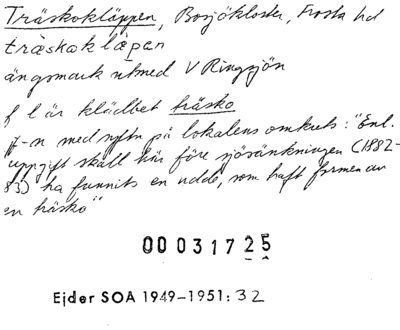 Träskokläppen, Bosjökloster, Frosta hd
träskokläpen
ängsmark utmed V Ringsjön
f l är klädbet träsko
jf-n med syftn på lokalens omkrets: "Enl.
uppgift skall här före sjösänkningen (1882-
83) ha funnits en udde, som haft formen av
en träsko"
00 0317 25
Ejder SOA 1949-1951: 32